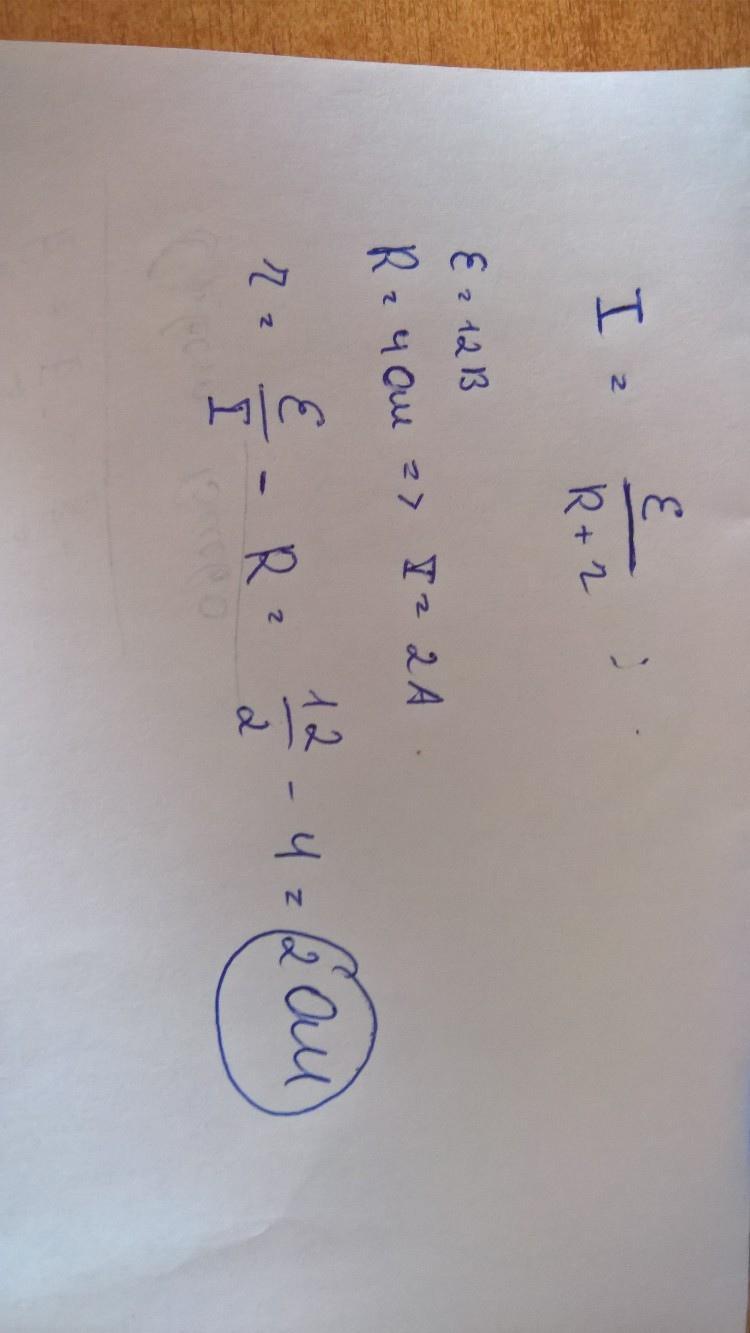 I = ℰ/(R+r) ;
ℰ = 12В
R = 4 Ом => I = 2А
r = ℰ/I - R = 12/2 - 4 = 2 Ом